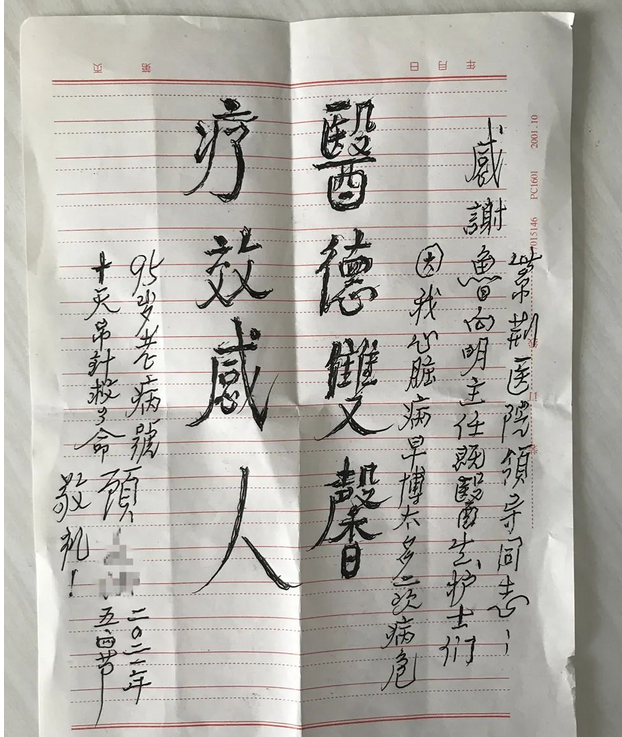 紫荆医院領导同志：
感謝魯向明主任既醫生、护士们
因我心脏病早博太多二次病危
醫德雙馨
疗效感人
95岁老病號
十天吊針救了命
顾
二0二一年
五四节
敬礼！
第 页
年 月 日
PC1601 2001.10